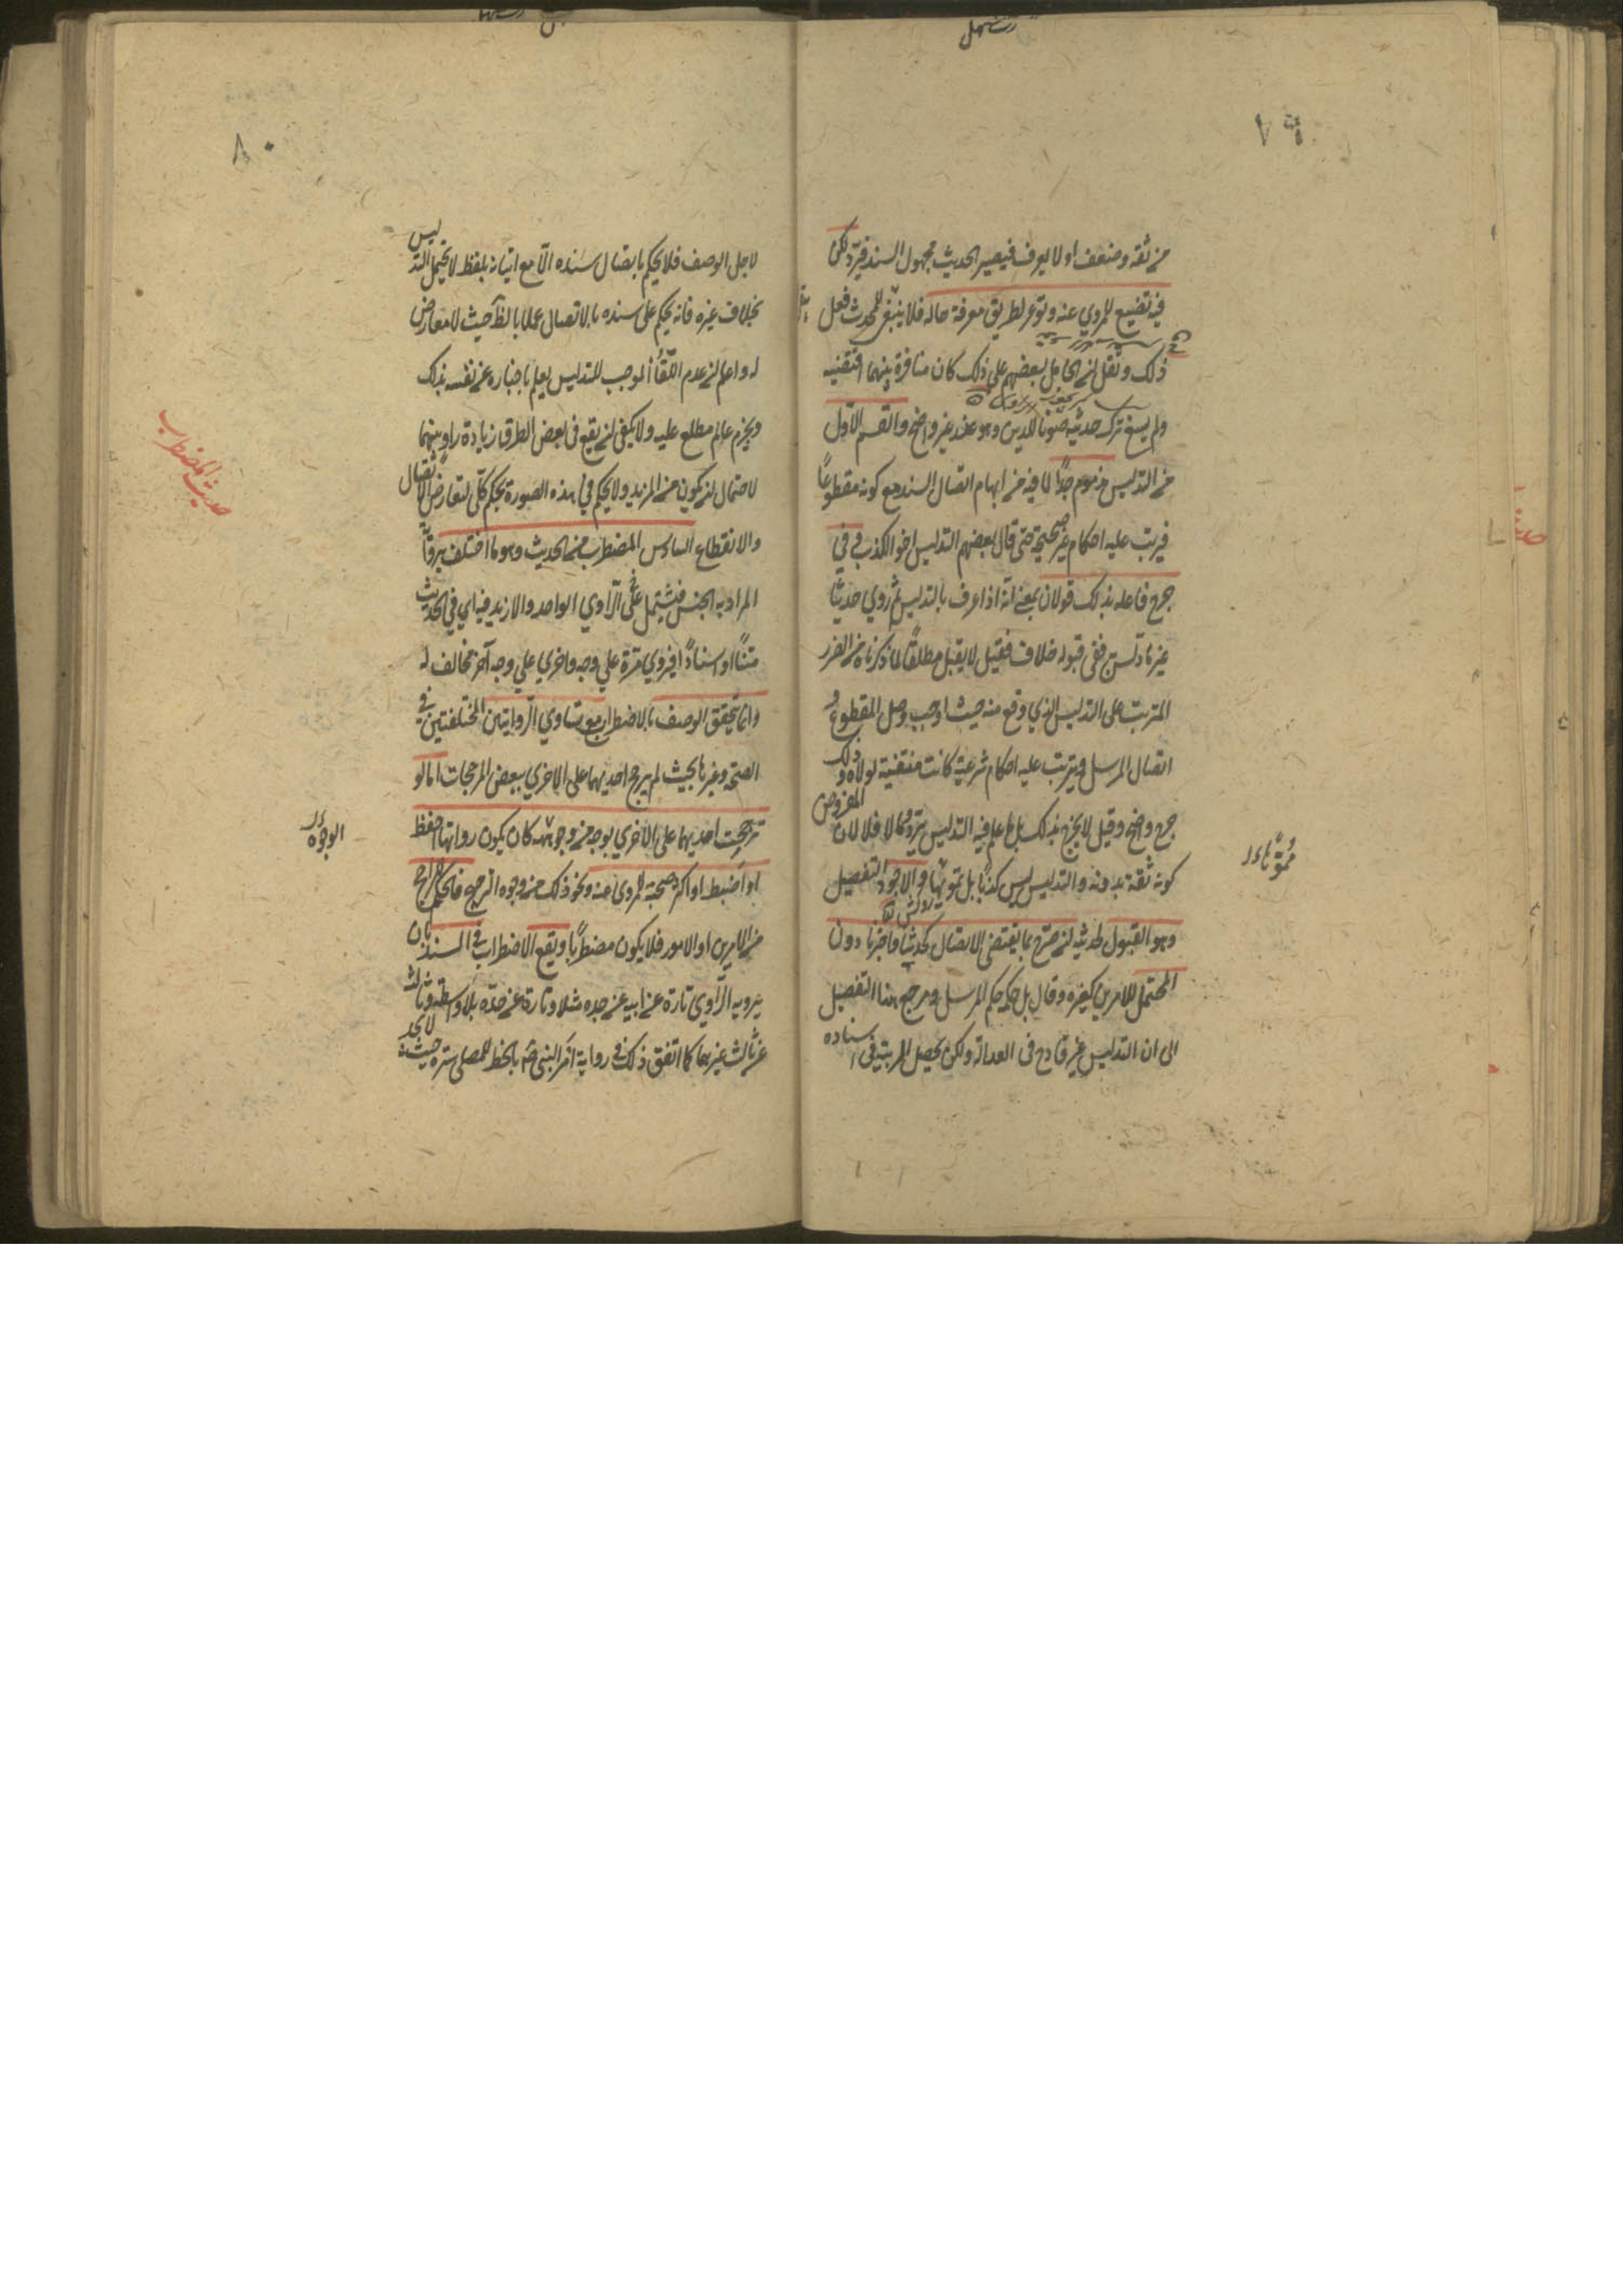 ٧٩
من ثقة وضعف او لا يعرف فيصير الحديث مجهول السند فيرد لكن
فيه تضييع للمروي عنه وتوعر لطريق معرفة حاله فلا ينبغي للمحدث فعل
ذلك ونقل ان الحامل لبعضهم على ذلك كان منافرة بينهما اقتضته
ولم يسغ ترك حديثه صونا للدين وهو عذر غير واضح والقسم الاول
من التدليس مذموم جدا لما فيه من ايهام اتصال السند مع كونه مقطوعا
فيرتب عليه احكام غير صحيحة حتى قال بعضهم التدليس اخو الكذب في
جرح فاعله بذلك قولان بمعنى انه اذا عرف بالتدليس ثم روي حديثا
غير ما دلس به ففي قبوله خلاف فقيل لا يقبل مطلقا لما ذكرناه من الضرر
المترتب على التدليس الذي وقع منه حيث اوجب وصل المقطوع
اتصال المرسل ويترتب عليه احكام شرعية كانت منتفية لولاه وذلك
جرح واضح وقيل لا يجرح بذلك بل ما علم فيه التدليس يرد وما لا فلا لان المفروض
كونه ثقة بدونه والتدليس ليس كذبا بل تمويها والاجود التفصيل
وهو القبول لحديثه ان صرح بما يقتضي الاتصال كحدثنا واخبرنا دون
المحتمل للامرين كغيره وقال بل حكمه حكم المرسل ومرجع هذا التفصيل
الى ان التدليس غير قادح في العدالة ولكن تحصل الريبة في اسناده
٨٠
لاجل الوصف فلا يحكم باتصال سنده الا مع اتيانه بلفظ لا يحتمل التدليس
بخلاف غيره فانه يحكم على سنده بالاتصال عملا بالظ حيث لا معارض
له واعلم ان عدم اللقاء الموجب للتدليس يعلم باخباره عن نفسه بذلك
وبجزم عالم مطلع عليه ولا يكفي ان يقع في بعض الطرق زيادة راو بينهما
لاحتمال ان يكون من المزيد ولا يحكم في هذه الصورة بحكم كلي لتعارض الاتصال
والانقطاع السادس المضطرب من الحديث وهو ما اختلف راويه
المراد به الجنس فيشتمل على الراوي الواحد والازيد فيه اي في الحديث
متنا او اسنادا فيروي مرة على وجه واخري على وجه آخر مخالف له
وانما يتحقق الوصف بالاضطراب مع تساوي الروايتين المختلفتين في
الصحة وغيرها بحيث لم يرجح احديهما على الاخري ببعض المرجحات اما لو
ترجحت احديهما على الاخري بوجه من وجوهه كان يكون راويها احفظ
او اضبط او اكثر صحبة للمروي عنه ونحو ذلك من وجوه الترجيح فالحكم للراجح
من الامرين او الامور فلا يكون مضطربا ويقع الاضطراب في السند بان
يرويه الراوي تارة عن ابيه عن جده مثلا وتارة عن جده بلا واسطة وثالثة
عن ثالث غيرهما كما اتفق ذلك في رواية امر النبي ص بالخط للمصلي سترة حيث لا يجد
حديث المضطرب
الوجوه